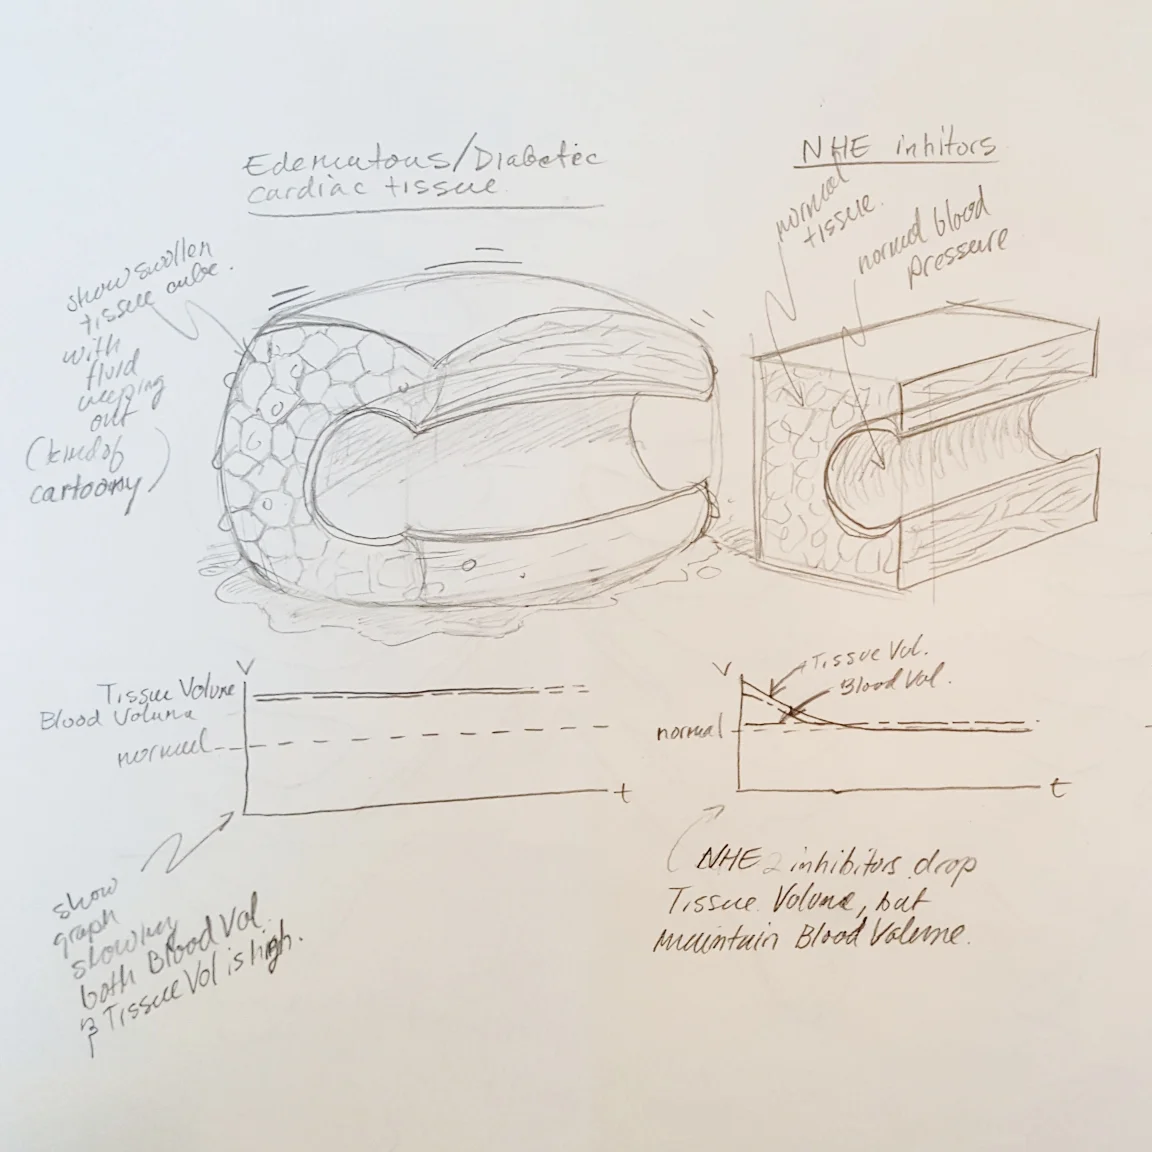 Edematous/Diabetic
cardiac tissue.
show swollen
tissue cube.
with
fluid
weeping
out
(kind of
cartoony)
NHE inhitors
normal
tissue.
normal blood
pressure
V
Tissue Volume
Blood Volume
normal
t
show
graph
showing
both Blood Vol.
& Tissue Vol is high.
V
Tissue Vol.
Blood Vol.
normal
t
NHE 2 inhibitors drop
Tissue Volume, but
maintain Blood Volume.